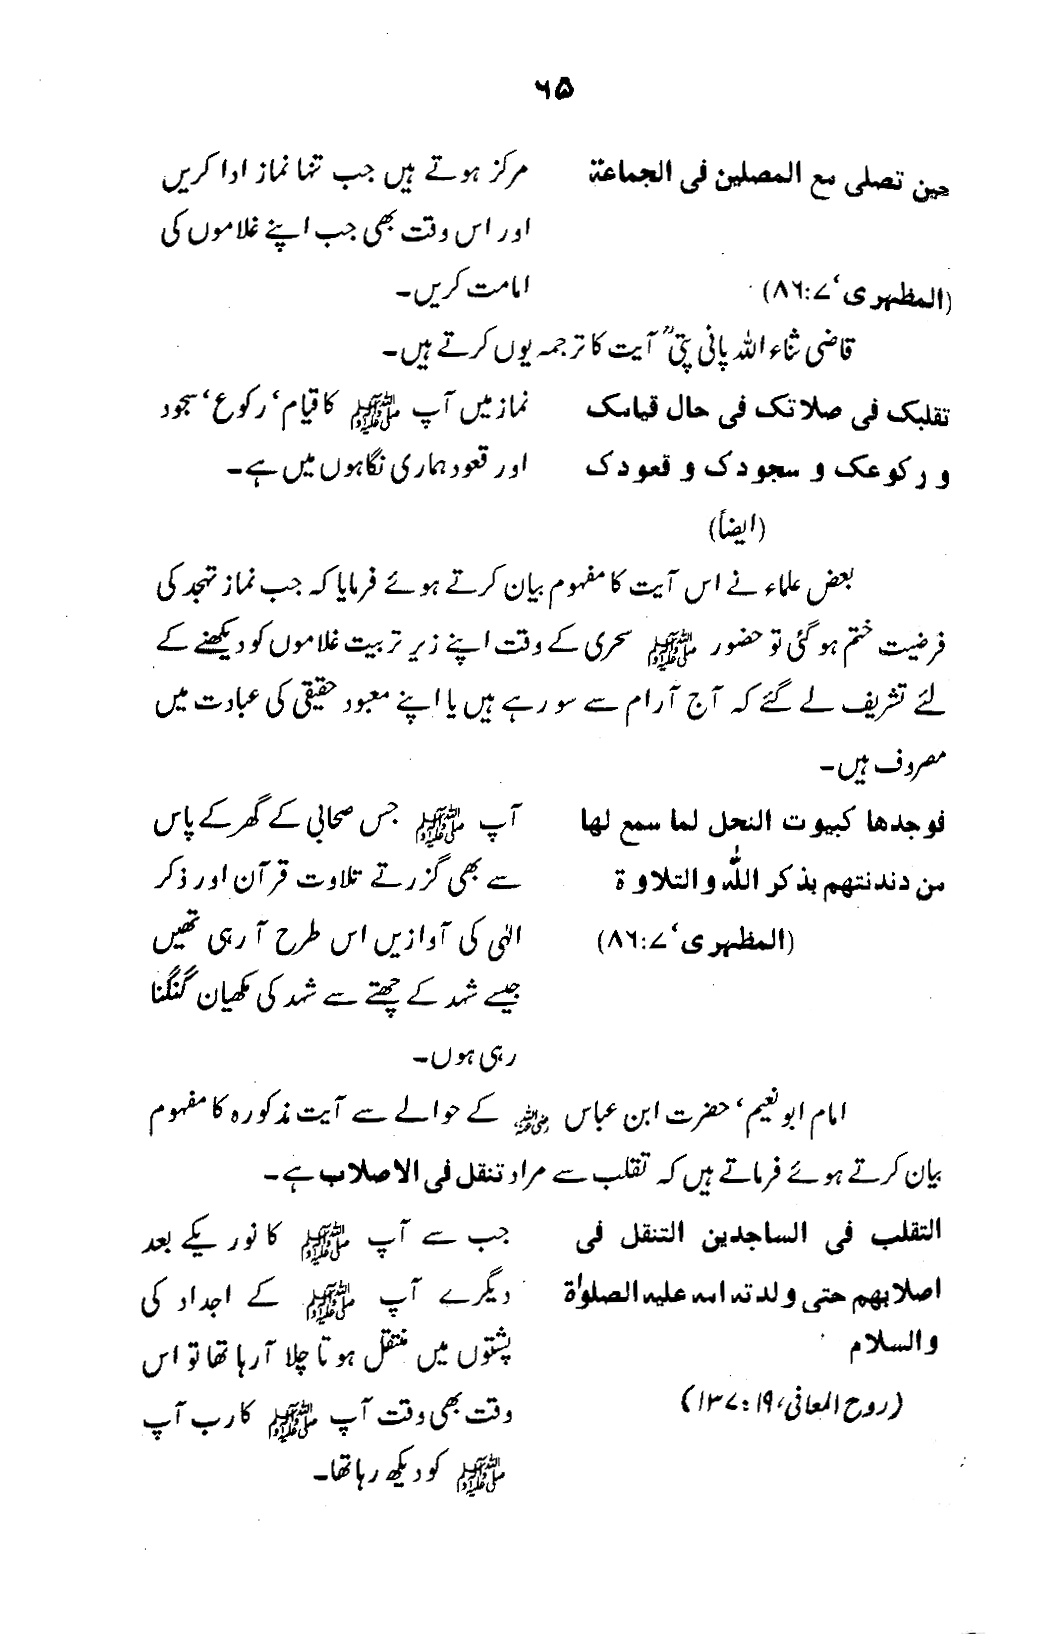 ۶۵
حین تصلی مع المصلین فی الجماعة
(المظہری، ۷:۸۶)
مرکز ہوتے ہیں جب تنہا نماز ادا کریں
اور اس وقت بھی جب اپنے غلاموں کی
امامت کریں۔
قاضی ثناء اللہ پانی پتیؒ آیت کا ترجمہ یوں کرتے ہیں۔
تقلبک فی صلاتک فی حال قیامک
و رکوعک و سجودک و قعودک
(ایضاً)
نماز میں آپ ﷺ کا قیام، رکوع، سجود
اور قعود ہماری نگاہوں میں ہے۔
بعض علماء نے اس آیت کا مفہوم بیان کرتے ہوئے فرمایا کہ جب نماز تہجد کی
فرضیت ختم ہو گئی تو حضور ﷺ سحری کے وقت اپنے زیر تربیت غلاموں کو دیکھنے کے
لئے تشریف لے گئے کہ آج آرام سے سو رہے ہیں یا اپنے معبود حقیقی کی عبادت میں
مصروف ہیں۔
فوجدھا کبیوت النحل لما سمع لھا
من دندنتھم بذکر اللّٰہ والتلاوة
(المظہری، ۷:۸۶)
آپ ﷺ جس صحابی کے گھر کے پاس
سے بھی گزرتے تلاوت قرآن اور ذکر
الٰہی کی آوازیں اس طرح آ رہی تھیں
جیسے شہد کے چھتے سے شہد کی مکھیاں گنگنا
رہی ہوں۔
امام ابو نعیم، حضرت ابن عباس رضی اللہ عنہ کے حوالے سے آیت مذکورہ کا مفہوم
بیان کرتے ہوئے فرماتے ہیں کہ تقلب سے مراد تنقل فی الاصلاب ہے۔
التقلب فی الساجدین التنقل فی
اصلابھم حتی ولدتہ امہ علیہ الصلوٰة
والسلام
(روح المعانی، ۱۹:۱۳۷)
جب سے آپ ﷺ کا نور یکے بعد
دیگرے آپ ﷺ کے اجداد کی
پشتوں میں منتقل ہوتا چلا آ رہا تھا تو اس
وقت بھی وقت آپ ﷺ کا رب آپ
ﷺ کو دیکھ رہا تھا۔